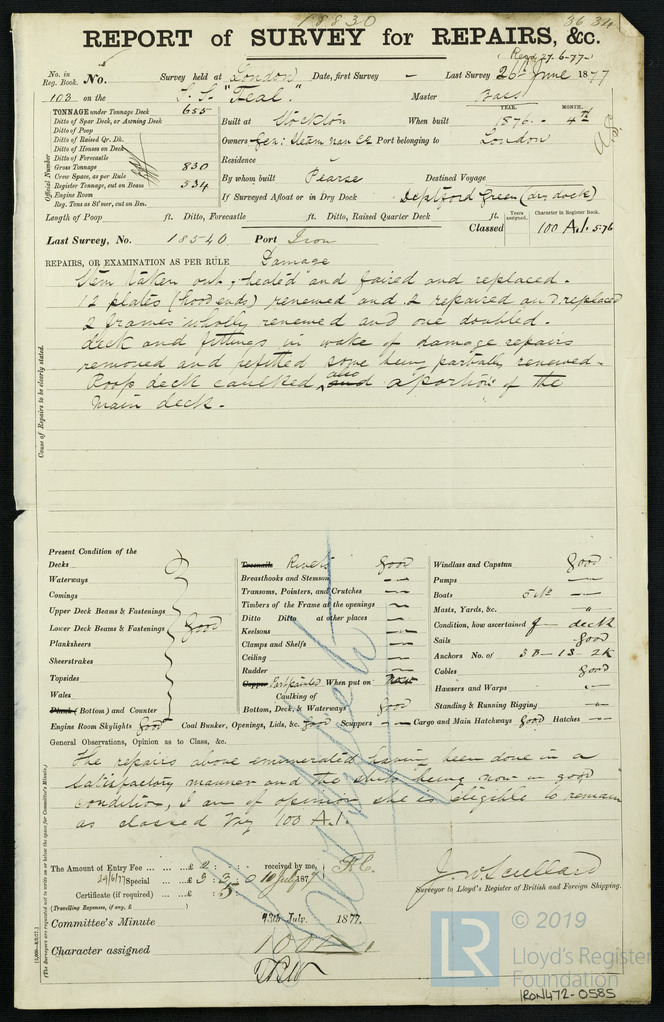 18830
3634
REPORT of SURVEY for REPAIRS, &c.
Recd 27.6.77
No. in Reg. Book. No. Survey held at London Date, first Survey — Last Survey 26 June 1877
103 on the S.S. "Teal." Master Bass
TONNAGE under Tonnage Deck 655
Ditto of Spar Deck, or Awning Deck
Ditto of Poop
Ditto of Raised Qr. Dk.
Ditto of Houses on Deck
Ditto of Forecastle
Gross Tonnage 830
Crew Space, as per Rule
Register Tonnage, cut on Beam 534
Engine Room
Reg. Tons as St'mer, cut on Bm.
Official Number
YEAR. MONTH.
Built at Stockton When built 1876 - 4th
Owners Gen: Steam Nav Co Port belonging to London
Residence
By whom built Pearse Destined Voyage
If Surveyed Afloat or in Dry Dock Deptford Green (dry dock)
Length of Poop ft. Ditto, Forecastle ft. Ditto, Raised Quarter Deck ft.
Years assigned. Character in Register Book.
Classed 100 A.1. 5-76
Last Survey, No. 18540 Port Iron
REPAIRS, OR EXAMINATION AS PER RULE Damage
Stem taken out, heated and faired and replaced.
12 plates (hood ends) renewed and 2 repaired and replaced
2 frames wholly renewed and one doubled.
deck and fittings in wake of damage repairs
removed and refitted some been partially renewed.
Poop deck caulked, also and a portion of the
Main deck.
Cause of Repairs to be clearly stated.
Present Condition of the
Decks
Waterways
Comings
Upper Deck Beams & Fastenings
Lower Deck Beams & Fastenings Good
Planksheers
Sheerstrakes
Topsides
Wales
Plank (Bottom) and Counter
Engine Room Skylights Good Coal Bunker, Openings, Lids, &c. Good Scuppers — Cargo and Main Hatchways Good Hatches —
Treenails Rivets Good
Breasthooks and Stemson
Transoms, Pointers, and Crutches
Timbers of the Frame at the openings
Ditto Ditto at other places
Keelsons
Clamps and Shelfs
Ceiling
Rudder
Copper Part painted When put on
Caulking of
Bottom, Deck, & Waterways Good
Windlass and Capstan Good
Pumps
Boats 5 No
Masts, Yards, &c. "
Condition, how ascertained f deck
Sails Good
Anchors No. of 5B - 1S - 2K
Cables Good
Hawsers and Warps
Standing & Running Rigging
General Observations, Opinion as to Class, &c.
The repairs above enumerated having been done in a
satisfactory manner and the ship being now in good
condition, I am of opinion she is eligible to remain
as classed viz 100 A.1.
The Amount of Entry Fee £ 2 : : received by me, F.C.
24/6/77 Special £ 3 : 3 : 0 10 July 1877
Certificate (if required) £ : 5 :
(Travelling Expenses, if any, £ )
J. W. Scullard
Surveyor to Lloyd's Register of British and Foreign Shipping.
Committee's Minute 13th July, 1877.
Character assigned 100 A 1
(The Surveyors are requested not to write on or below the space for Committee's Minute.)
© 2019
LR
Lloyd's Register
Foundation
IRON472-0585